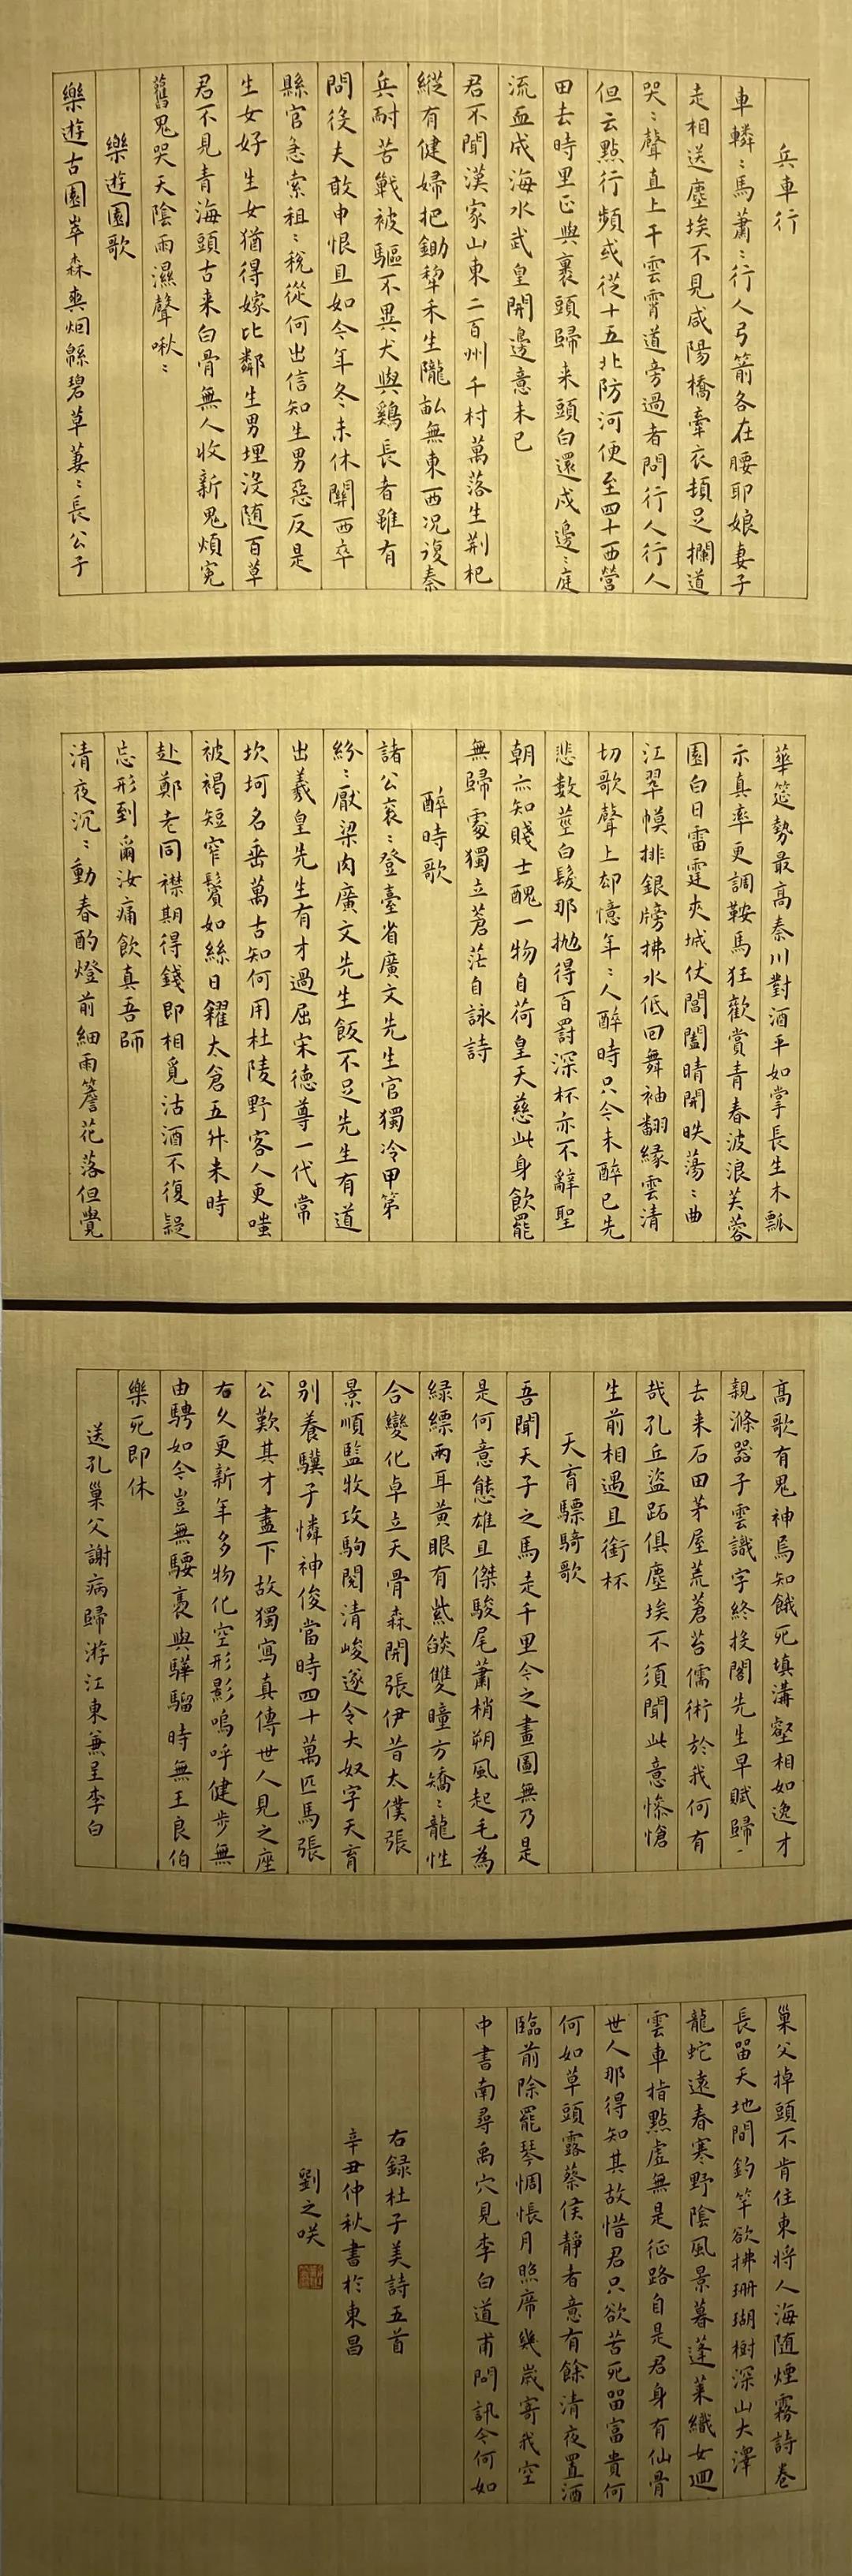 兵車行
車轔〻馬蕭〻行人弓箭各在腰耶娘妻子
走相送塵埃不見咸陽橋牽衣頓足攔道
哭〻聲直上干雲霄道旁過者問行人行人
但云點行頻或從十五北防河便至四十西營
田去時里正與裹頭歸来頭白還戍邊〻庭
流血成海水武皇開邊意未已
君不聞漢家山東二百州千村萬落生荆杞
縱有健婦把鋤犂禾生隴畝無東西況復秦
兵耐苦戰被驅不異犬與鷄長者雖有
問役夫敢申恨且如今年冬未休關西卒
縣官急索租〻稅從何出信知生男惡反是
生女好生女猶得嫁比鄰生男埋没随百草
君不見青海頭古来白骨無人收新鬼煩寃
舊鬼哭天陰雨濕聲啾〻
樂遊園歌
樂遊古園崒森爽烟緜碧草萋〻長公子
華筵勢最高秦川對酒平如掌長生木瓢
示真率更調鞍馬狂歡賞青春波浪芙蓉
園白日雷霆夾城仗閶闔晴開昳蕩〻曲
江翠幙排銀牓拂水低回舞袖翻緣雲清
切歌聲上却憶年〻人醉時只今未醉已先
悲数莖白髮那抛得百罰深杯亦不辭聖
朝亦知賤士醜一物自荷皇天慈此身飲罷
無歸處獨立蒼茫自詠詩
醉時歌
諸公衮〻登臺省廣文先生官獨冷甲第
紛〻厭梁肉廣文先生飯不足先生有道
出羲皇先生有才過屈宋德尊一代常
坎坷名垂萬古知何用杜陵野客人更嗤
被褐短窄鬢如絲日糴太倉五升米時
赴鄭老同襟期得錢即相覓沽酒不復疑
忘形到爾汝痛飲真吾師
清夜沉〻動春酌燈前細雨簷花落但覺
高歌有鬼神焉知餓死填溝壑相如逸才
親滌器子雲識字終投閣先生早賦歸
去来石田茅屋荒蒼苔儒術於我何有
哉孔丘盜跖俱塵埃不須聞此意慘愴
生前相遇且銜杯
天育驃騎歌
吾聞天子之馬走千里今之畫圖無乃是
是何意態雄且傑駿尾蕭梢朔風起毛為
緑縹兩耳黃眼有紫燄雙瞳方矯〻龍性
合變化卓立天骨森開張伊昔太僕張
景順監牧攻駒閱清峻遂令大奴字天育
别養驥子憐神俊當時四十萬匹馬張
公歎其才盡下故獨寫真傳世人見之座
右久更新年多物化空形影嗚呼健步無
由騁如今豈無騕褭與驊騮時無王良伯
樂死即休
送孔巢父謝病歸游江東兼呈李白
巢父掉頭不肯住東将入海随煙霧詩卷
長留天地間釣竿欲拂珊瑚樹深山大澤
龍蛇遠春寒野陰風景暮蓬萊織女迴
雲車指點虛無是征路自是君身有仙骨
世人那得知其故惜君只欲苦死留富貴何
何如草頭露蔡侯靜者意有餘清夜置酒
臨前除罷琴惆悵月照席幾歲寄我空
中書南尋禹穴見李白道甫問訊今何如
右録杜子美詩五首
辛丑仲秋書於東昌
劉之咲